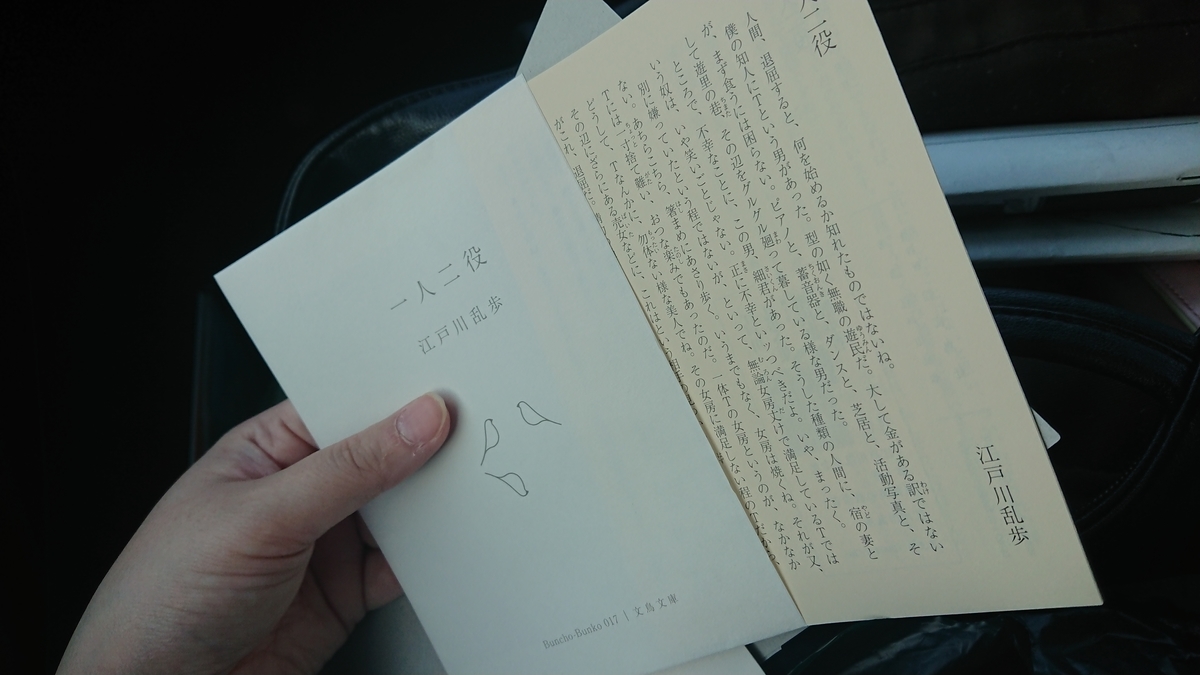 一人二役
江戸川乱歩
Buncho-Bunko 017 | 文鳥文庫
人二役
江戸川乱歩
人間、退屈すると、何を始めるか知れたものではないね。
僕の知人にTという男があった。型の如く無職の遊民だ。大して金がある訳ではない
が、まず食うには困らない。ピアノと、蓄音器と、ダンスと、芝居と、活動写真と、そ
して遊里の巷、その辺をグルグル廻って暮している様な男だった。
ところで、不幸なことに、この男、細君があった。そうした種類の人間に、宿の妻と
いう奴は、いや笑いごとじゃない。正に不幸といッつべきだよ。いや、まったく。
別に嫌っていたという程ではないが、といって、無論女房丈けで満足しているTでは
ない。あちらこちら、箸まめにあさり歩く。いうまでもなく、女房は焼くね。それが又、
Tには一寸捨て難い、おつな楽みでもあったのだ。一体Tの女房というのが、なかなか
どうして、Tなんかに、勿体ない様な美人でね。その女房に満足しない程の
その辺にざらにある売女などに、これはという
がこれ、退屈だ。